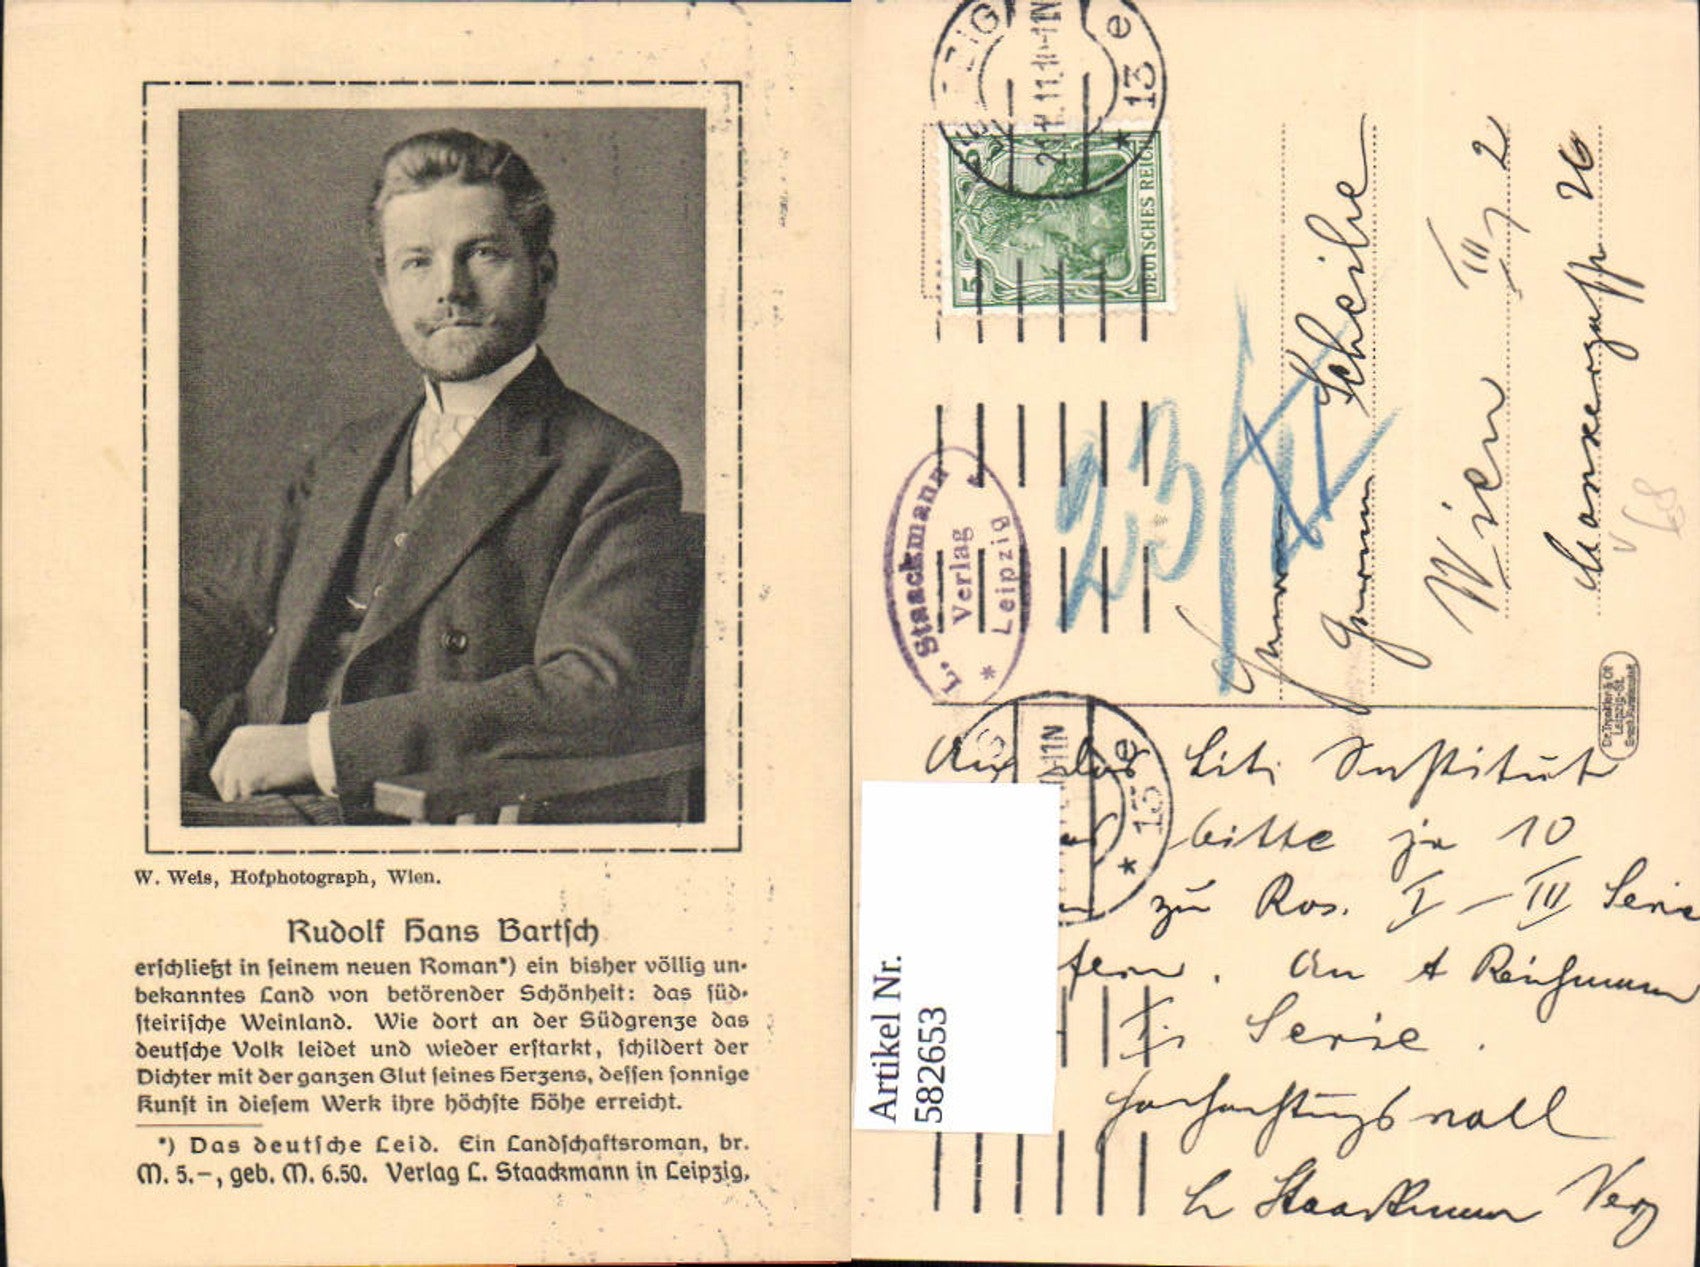 W. Weis, Hofphotograph, Wien.
Rudolf Hans Bartsch
erschließt in seinem neuen Roman*) ein bisher völlig un-
bekanntes Land von betörender Schönheit: das süd-
steirische Weinland. Wie dort an der Südgrenze das
deutsche Volk leidet und wieder erstarkt, schildert der
Dichter mit der ganzen Glut seines Herzens, dessen sonnige
Kunst in diesem Werk ihre höchste Höhe erreicht.
*) Das deutsche Leid. Ein Landschaftsroman, br.
M. 5.–, geb. M. 6.50. Verlag L. Staackmann in Leipzig.
13 e
5
DEUTSCHES REICH
L. Staackmann
Verlag
* Leipzig
23
Scheibe
Wien III/2
26
Leipzig-St.
lit. Institut
13 e
bitte je 10
zu Ros. I – III Serie
I. Serie.
L Staackmann Verl
Artikel Nr.
582653